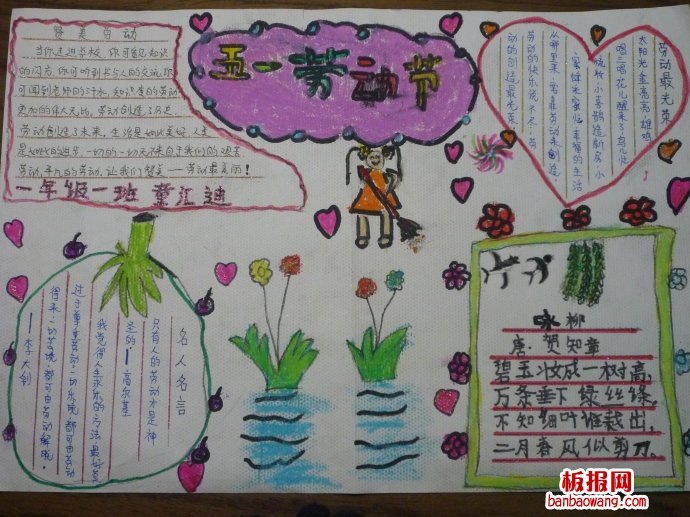 五一劳动节
赞美劳动
当你走进学校，你可看见知识
的闪光，你可听到书与人的交流，你
可闻到老师的汗水，知识里的劳动
更加的伟大无比。劳动创造了历史，
劳动创造了未来，生活是如此美好，人生
是如此的进步，一切的一切无不来自于我们的艰苦
劳动，平凡的劳动，让我们赞美——劳动最美丽！
一年级一班 董汇迪
劳动最光荣
太阳光金亮亮，雄鸡
唱三唱，花儿醒来了，鸟儿忙
梳妆，小喜鹊造新房，小
蜜蜂采蜜忙，幸福的生活
从哪里来，要靠劳动来创造，
劳动的快乐说不尽，劳
动的创造最光荣
名人名言
只有人的劳动才是神
圣的 高尔基
我觉得人生求乐的方法，最好莫
过于尊重劳动。一切乐境，都可由劳动
得来，一切苦境，都可由劳动解脱。
——李大钊
咏柳
唐：贺知章
碧玉妆成一树高，
万条垂下绿丝绦。
不知细叶谁裁出，
二月春风似剪刀。
板报网
banbaowang.com